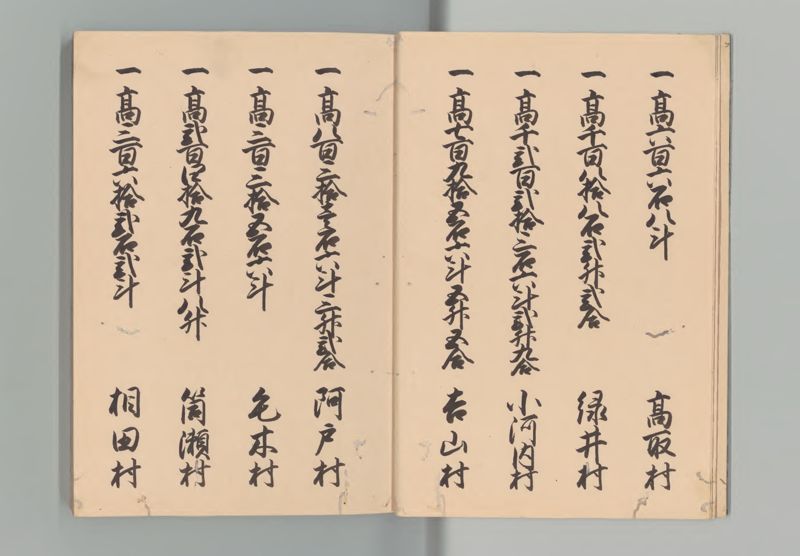 一高六百六石八斗 高取村
一高千百八拾八石弐升弐合 緑井村
一高千弐百弐拾三石六斗弐升九合 小河内村
一高七百九拾五石六斗五升五合 吉山村
一高八百三拾壱石六斗三升弐合 阿戸村
一高三百三拾五石六斗 毛木村
一高弐百四拾九石弐斗八升 筒瀬村
一高三百六拾弐石弐斗 相田村